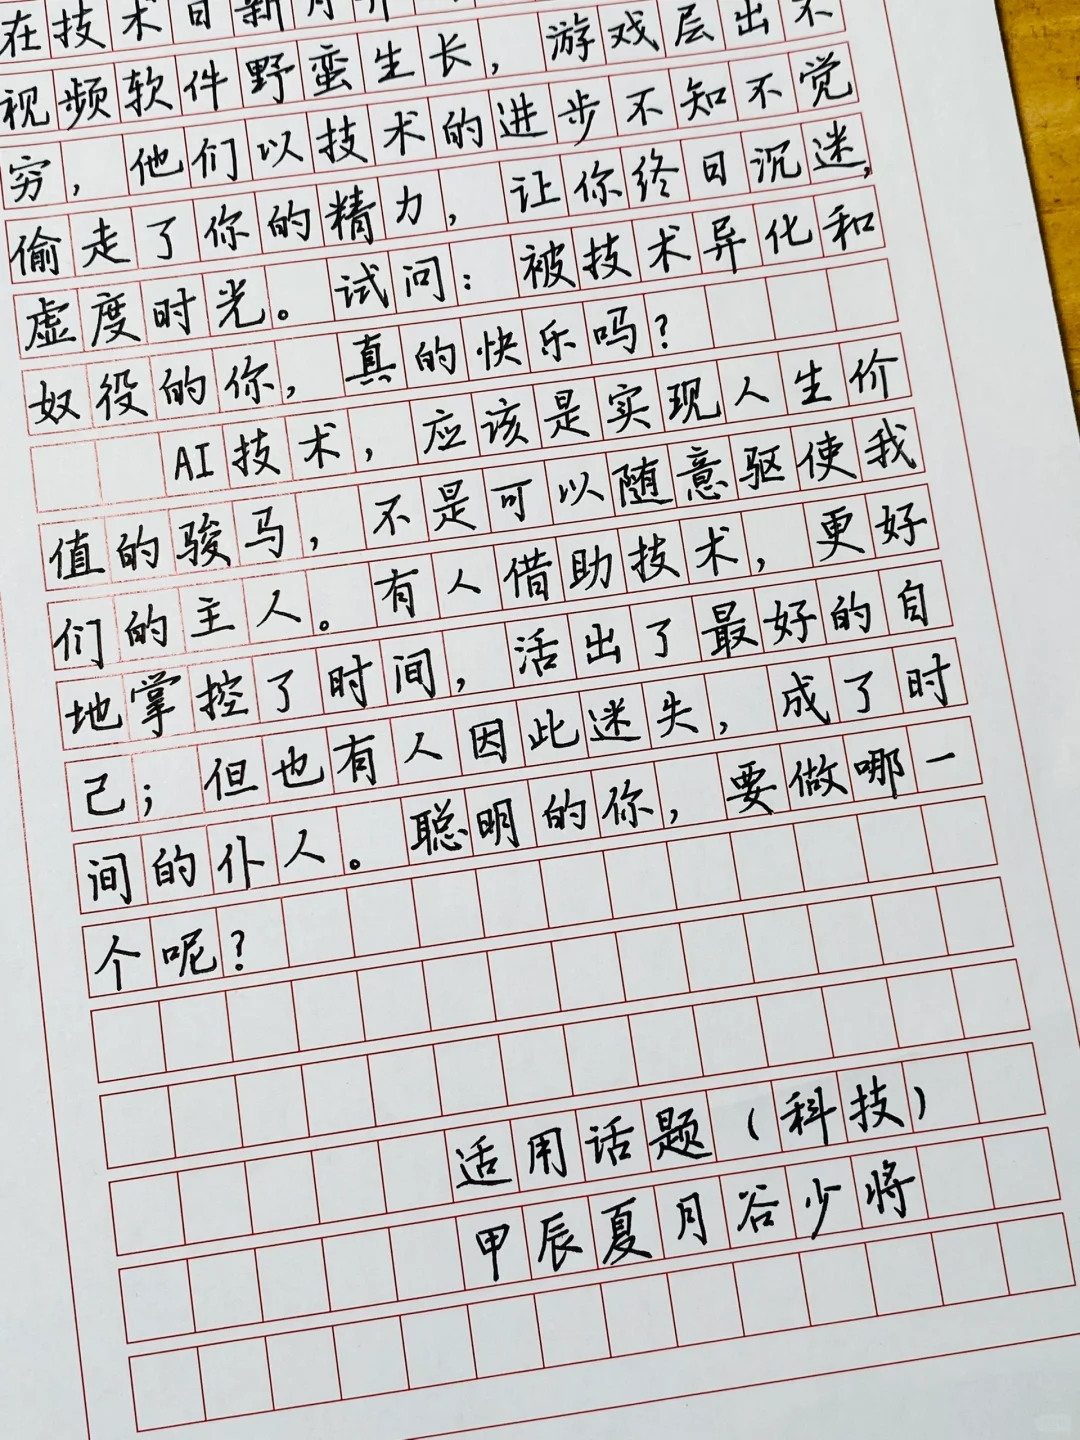 在技术日新月
视频软件野蛮生长，游戏层出不
穷，他们以技术的进步不知不觉
偷走了你的精力，让你终日沉迷，
虚度时光。试问：被技术异化和
奴役的你，真的快乐吗？
AI技术，应该是实现人生价
值的骏马，不是可以随意驱使我
们的主人。有人借助技术，更好
地掌控了时间，活出了最好的自
己；但也有人因此迷失，成了时
间的仆人。聪明的你，要做哪一
个呢？
适用话题（科技）
甲辰夏月谷少将